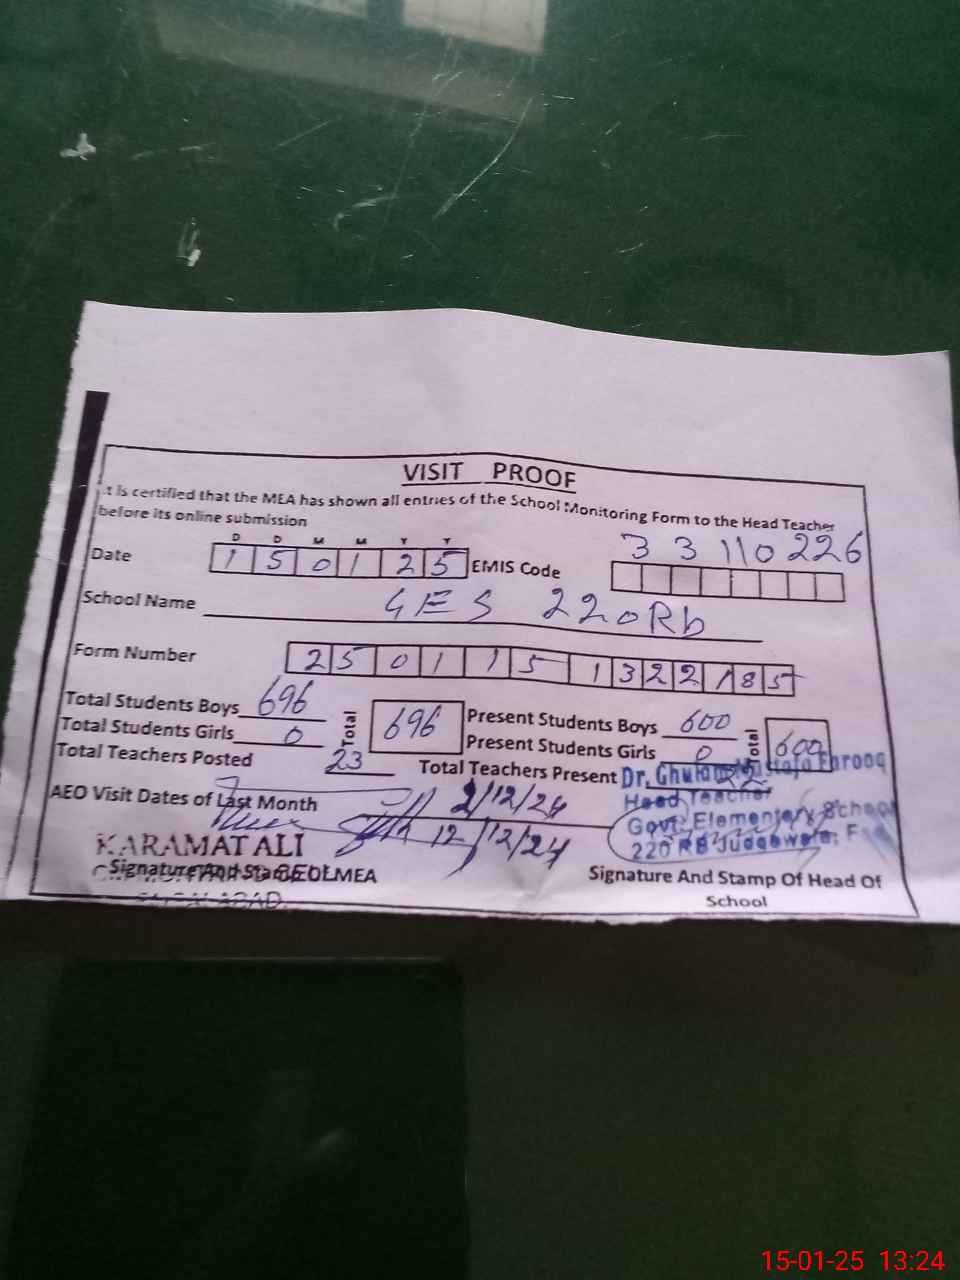 VISIT PROOF
It is certified that the MEA has shown all entries of the School Monitoring Form to the Head Teacher
before its online submission
D D M M Y Y
Date 1 5 0 1 2 5 EMIS Code 3 3 1 1 0 2 2 6
School Name GES 220Rb
Form Number 2 5 0 1 1 5 1 3 2 2 1 8 5
Total Students Boys 696 Total 696 Present Students Boys 600 Total 600
Total Students Girls 0 Present Students Girls 0
Total Teachers Posted 23 Total Teachers Present 22
Dr. Ghulam Mustafa Farooq
Head Teacher
Govt. Elementary School
220 RB Judgewala, F
AEO Visit Dates of Last Month 2/12/24
12/12/24
KARAMAT ALI
Signature And Stamp Of MEA
Signature And Stamp Of Head Of
School
15-01-25 13:24